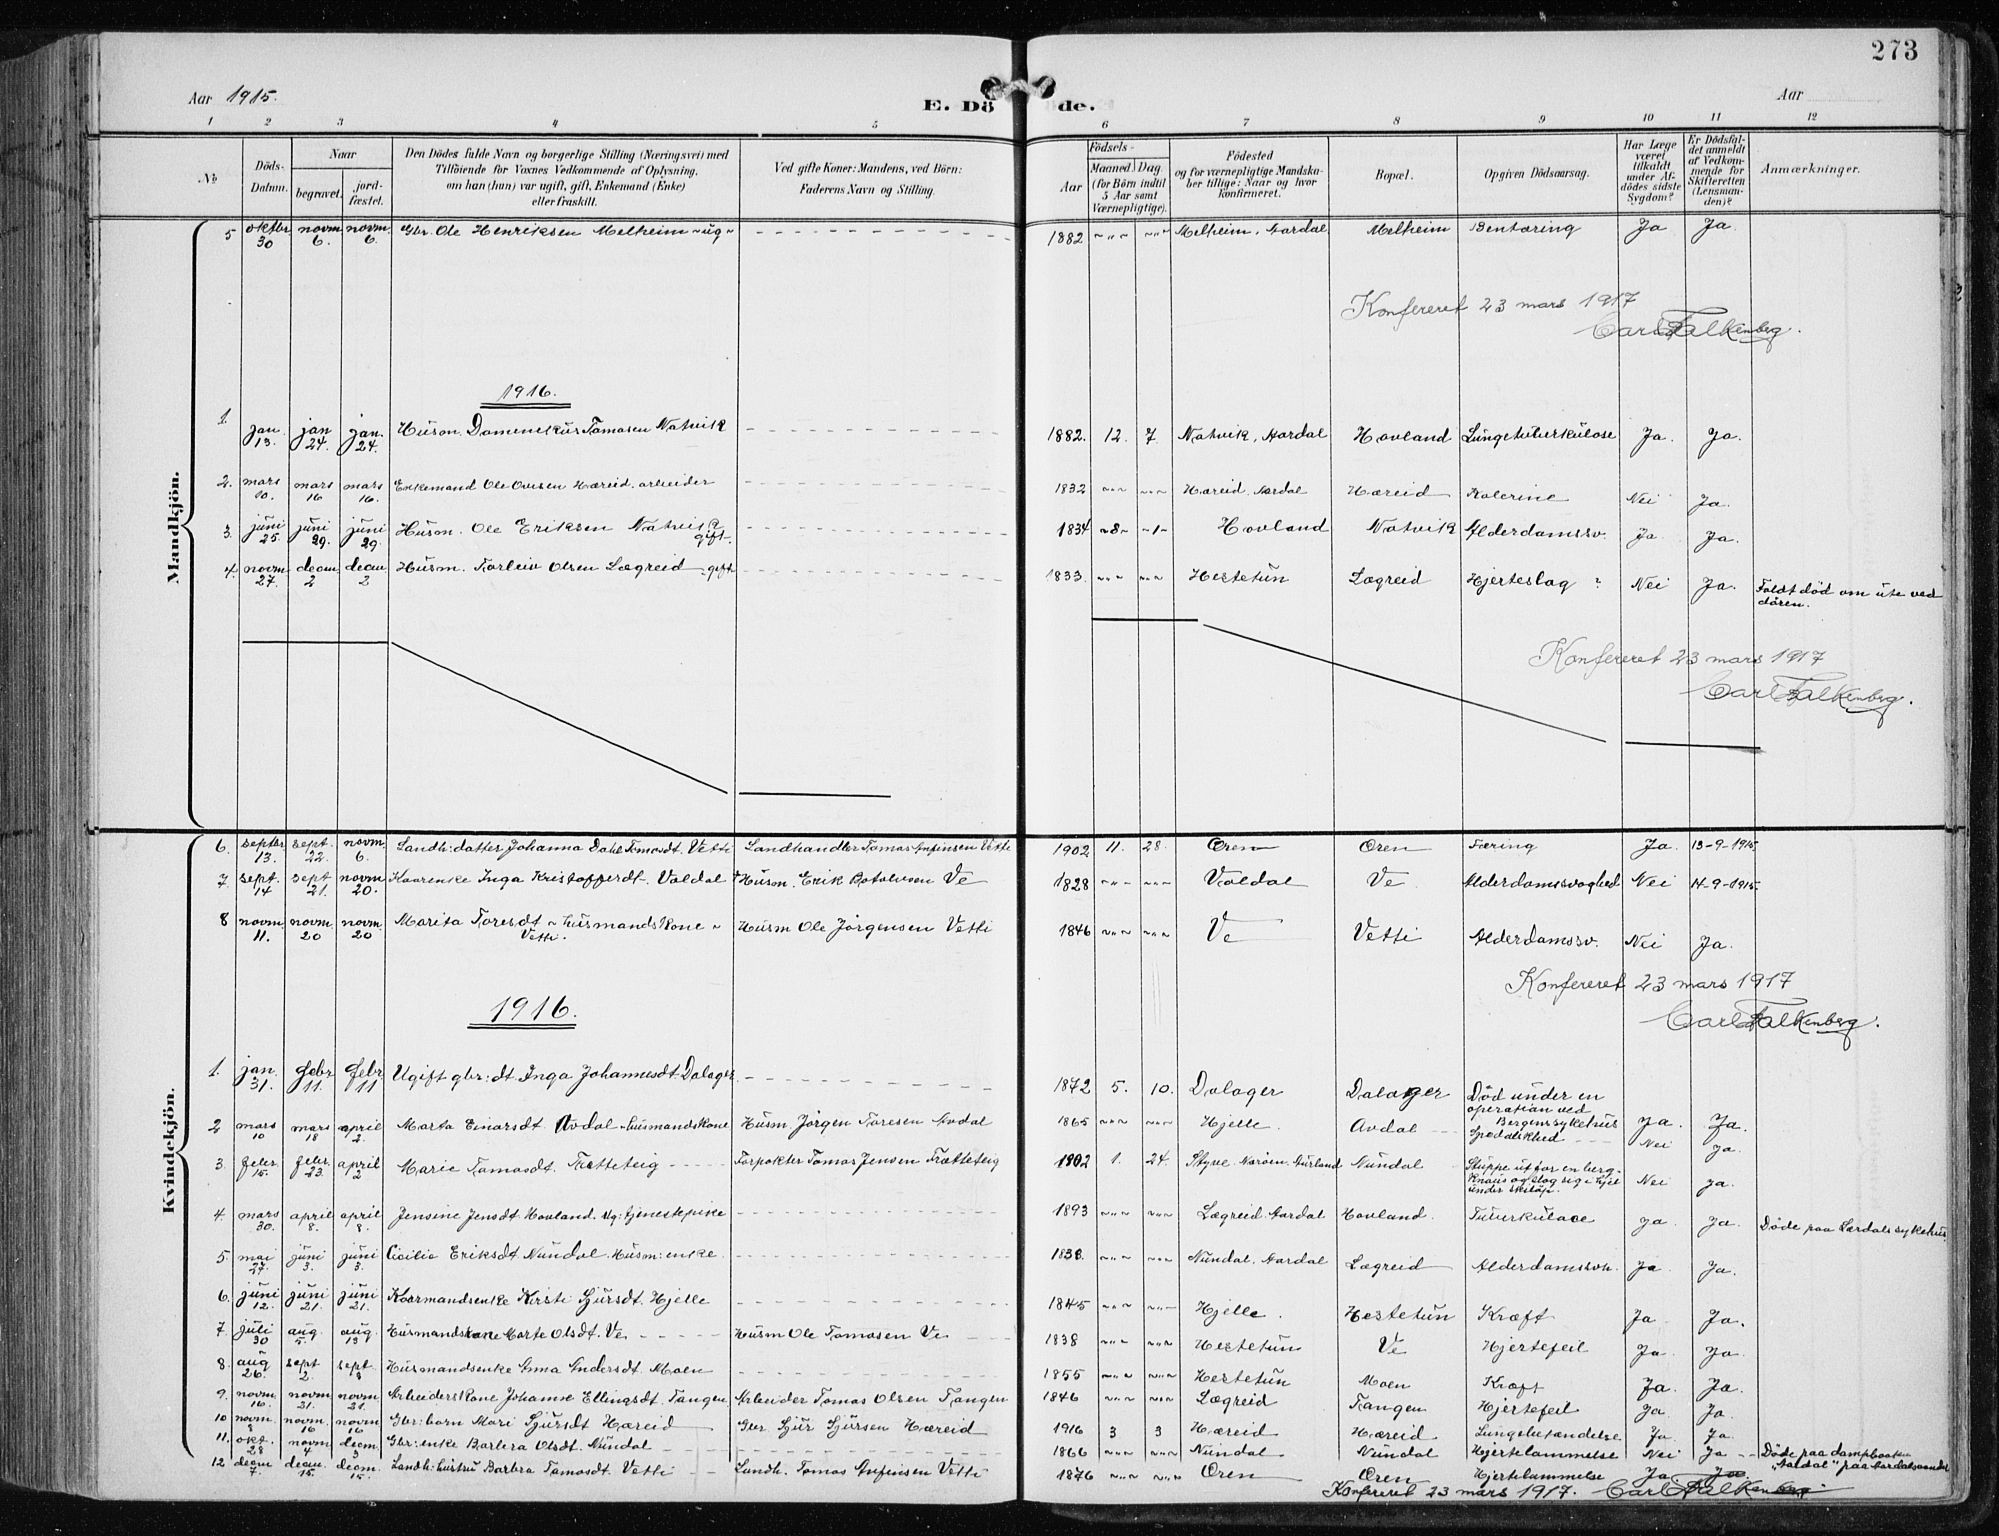 273
Aar 1915.
E. Dö de.
Aar
1 2 3 4 5 6 7 8 9 10 11 12
№
Döds-Datum.
Naar
begravet.
jord-fæstet.
Den Dödes fulde Navn og borgerlige Stilling (Næringsvei) med
Tilföiende for Voxnes Vedkommende af Oplysning,
om han (hun) var ugift, gift, Enkemand (Enke)
eller fraskilt.
Ved gifte Koner: Mandens, ved Börn:
Faderens Navn og Stilling.
Födsels-
Aar
Maaned. Dag
(for Börn indtil
5 Aar samt
Værnepligtige).
Födested
og for værnepligtige Mandska-
ber tillige: Naar og hvor
konfirmeret.
Bopæl.
Opgiven Dödsaarsag.
Har Læge
været
tilkaldt
under Af-
dödes sidste
Sygdom?
Er Dödsfal-
det anmeldt
af Vedkom-
mende for
Skifteretten
(Lensman-
den)?
Anmærkninger.
Mandkjön.
5 oktbr 30 novm 6. novm. 6. Gbr. Ole Henriksen Melheim ~ug~ 1882 ~"~ ~"~ Melheim, Aardal Melheim Bentæring Ja Ja
Konfereret 23 mars 1917
Carl Falkenberg.
1916.
1. jan. 13. jan 24. jan. 24. Husm. Domenekus Tomasen Natvik 1882. 12. 7 Natvik, Aardal Hovland Lungetuberkulose Ja. Ja.
2. mars 10. mars 16 mars 16. Enkemand Ole Olsen Hæreid. arbeider 1832 ~"~ ~"~ Hæreid, Aardal Hæreid Kolerine Nei Ja.
3. juni 25. juni 29. juni 29. Husm. Ole Eriksen Natvik gift. 1834 ~8~ ~1~ Hovland Natvik Alderdomssv. Ja Ja.
4. novm 27. decm. 2 decm. 2 Husm. Torleiv Olsen Lægreid gift 1833. ~"~ ~"~ Hestetun Lægreid Hjerteslag ? Nei Ja. Faldt död om ute ved
dören.
Konfereret 23 mars 1917
Carl Falkenberg.
Kvindekjön.
6. septbr 13. sept. 22. novm. 6. Landh: datter Johanna Dahl Tomasdt. Vetti Landhandler Tomas Anfinsen Vetti 1902 11. 28. Øren Øren Tæring Ja. 13-9-1915.
7. sept. 14 sept 21. novm 20. Kaarenke Inga Kristofferdt. Valdal Husm. Erik Botolvsen Ve 1828 ~"~ ~"~ Valdal Ve Alderdomssvaghed Nei 14-9-1915.
8 novm. 11. novm. 20 novm. 20 Marita Toresdt ~ husmandskone ~ Vetti. Husm Ole Jörgensen Vetti 1846 ~"~ ~"~ Ve Vetti Alderdomssv. Nei Ja.
Konfereret 23 mars 1917
Carl Falkenberg.
1916.
1. jan. 31. febr 11. febr 11 Ugift gbr: dt. Inga Johannesdt Dalager 1872 5. 10. Dalager Dalager Död under en
operation ved
Bergens sykehus Ja. Ja.
2 mars 10 mars 18 april 2. Marta Einarsdt Avdal ~ husmandskone Husm. Jörgen Toresen Avdal 1865 ~"~ ~"~ Hjelle. Avdal Spedalskhed Nei Ja.
3. febr. 15. febr. 23. april 2 Marie Tomasdt. Trætteteig Forpakter Tomas Jensen Trætteteig 1902 1. 24. Styve, Nærøen, Aurland Nundal Stuppe utfor en berg-
knaus og slog sig i hjel
under skiløp. Nei Ja.
4. mars 30. april 8. april 8. Jensine Jensdt. Hovland. Ug: tjenestepike 1893 ~"~ ~"~ Lægreid Aardal Hovland. Tuberkulose Ja Ja. Döde paa Lærdals sykehus.
5. mai 27. juni 3. juni 3. Cicilie Eriksdt Nundal. Husm: enke. 1838. ~"~ ~"~ Nundal, Aardal Lægreid Alderdomssvh. Ja Ja.
6. juni 12. juni 21. juni 21. Kaarmandsenke Kirsti Sjursdt. Hjelle 1845 ~"~ ~"~ Hjelle. Hestetun Kræft Ja Ja.
7. juli 30 aug. 5. aug. 13 Husmandskone Marte Olsdt. Ve Husm Ole Tomasen Ve 1838 ~"~ ~"~ Hestetun Ve Hjertefeil Ja Ja.
8. aug 26. sept 2. sept. Husmandsenke Anna Andersdt Moen 1855 ~"~ ~"~ Hestetun Moen Kræft Ja. Ja.
9. novm. 16. novm 21. novm 21. Arbeiderskone Johanne Ellingsdt. Tangen Arbeider Tomas Olsen Tangen 1846 ~"~ ~"~ Lægreid Tangen Hjertefeil Ja Ja.
10 novm. 8 novm. 16 novm 16 Gbr: barn Mari Sjursdt Hæreid Gbr Sjur Sjursen Hæreid 1916 3 3 Hæreid Hæreid Lungebetændelse Ja. Ja.
11. okt. 28 novm 4 decm. 3 Gbr: enke Barbra Olsdt. Nundal 1866 ~"~ ~"~ Nundal Nundal Hjertelammelse Nei Ja Döde paa dampbaaten
"Aardal" paa Aardalsvandet
12 decm 7. decm. 15. decm. 15. Landh: hustru Barbra Tomasdt. Vetti Landh. Tomas Anfinsen Vetti 1876 ~"~ ~"~ Øren Øren Hjertelammelse Ja Ja
Konfereret 23 mars 1917. Carl Falkenberg